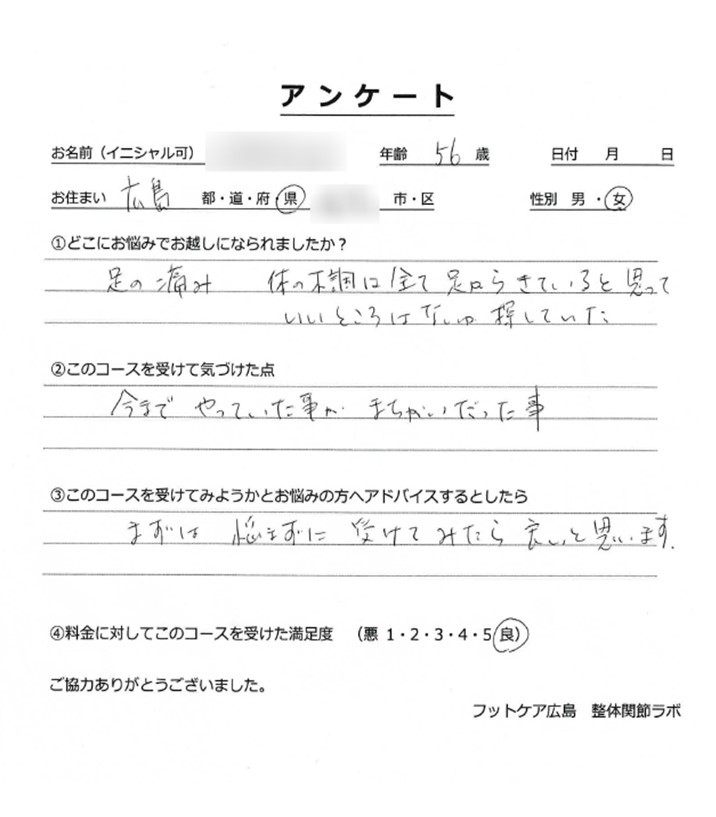 アンケート
お名前（イニシャル可） 年齢 56 歳 日付 月 日
お住まい 広島 都・道・府・県 市・区 性別 男・女
①どこにお悩みでお越しになられましたか？
足の痛み 体の不調は全て足からきていると思って
いいところはないか探していた
②このコースを受けて気づけた点
今まで やっていた事が まちがいだった事
③このコースを受けてみようかとお悩みの方へアドバイスするとしたら
まずは 悩まずに 受けてみたら良いと思います.
④料金に対してこのコースを受けた満足度 （悪 1・2・3・4・5 良）
ご協力ありがとうございました。
フットケア広島 整体関節ラボ